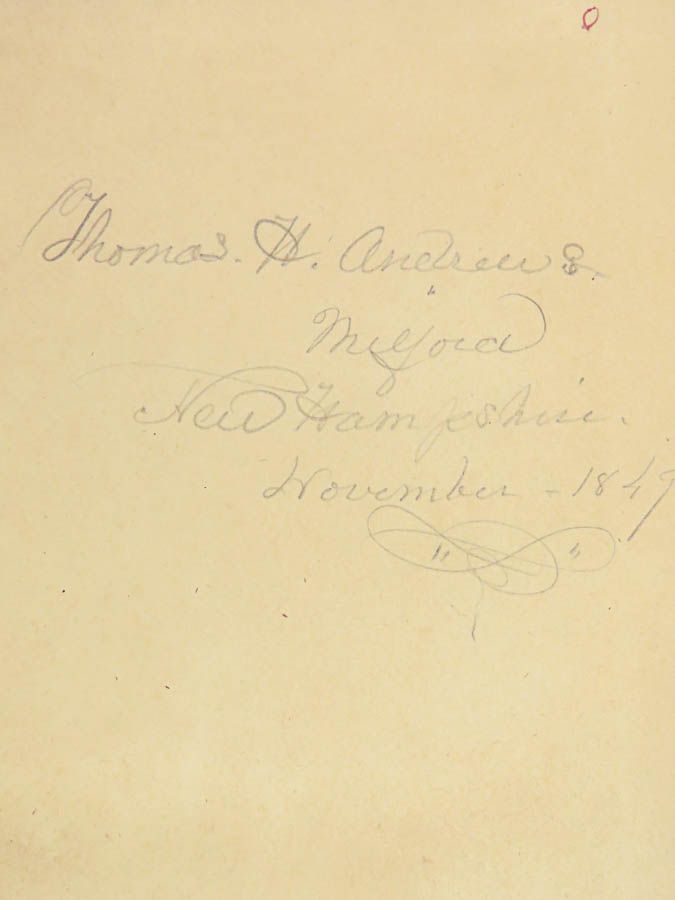 Thomas. H. Andrews.
Milford
New Hampshire.
November - 1849